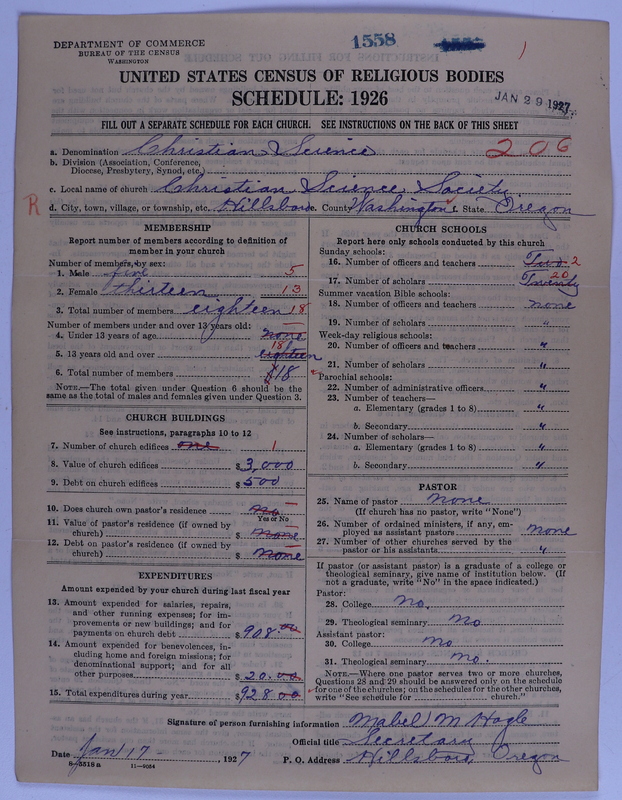 1558
DEPARTMENT OF COMMERCE
BUREAU OF THE CENSUS
WASHINGTON
UNITED STATES CENSUS OF RELIGIOUS BODIES
SCHEDULE: 1926
JAN 29 1927
FILL OUT A SEPARATE SCHEDULE FOR EACH CHURCH. SEE INSTRUCTIONS ON THE BACK OF THIS SHEET
a. Denomination Christian Science 206
b. Division (Association, Conference,
Diocese, Presbytery, Synod, etc.)
c. Local name of church Christian Science Society
R d. City, town, village, or township, etc. Hillsboro e. County Washington f. State Oregon
MEMBERSHIP
Report number of members according to definition of
member in your church
Number of members, by sex:
1. Male five 5
2. Female thirteen 13
3. Total number of members eighteen 18
Number of members under and over 13 years old:
4. Under 13 years of age none
5. 13 years old and over eighteen 18
6. Total number of members 18
NOTE.—The total given under Question 6 should be the
same as the total of males and females given under Question 3.
CHURCH BUILDINGS
See instructions, paragraphs 10 to 12
7. Number of church edifices one 1
8. Value of church edifices $3,000
9. Debt on church edifices $500
10. Does church own pastor's residence no
Yes or No
11. Value of pastor's residence (if owned by
church) $ none
12. Debt on pastor's residence (if owned by
church) $ none
EXPENDITURES
Amount expended by your church during last fiscal year
13. Amount expended for salaries, repairs,
and other running expenses; for im-
provements or new buildings; and for
payments on church debt $908.00
14. Amount expended for benevolences, in-
cluding home and foreign missions; for
denominational support; and for all
other purposes $20.00
15. Total expenditures during year $928.00
CHURCH SCHOOLS
Report here only schools conducted by this church
Sunday schools:
16. Number of officers and teachers Two 2
17. Number of scholars Twenty 20
Summer vacation Bible schools:
18. Number of officers and teachers none
19. Number of scholars "
Week-day religious schools:
20. Number of officers and teachers "
21. Number of scholars "
Parochial schools:
22. Number of administrative officers "
23. Number of teachers—
a. Elementary (grades 1 to 8) "
b. Secondary "
24. Number of scholars—
a. Elementary (grades 1 to 8) "
b. Secondary "
PASTOR
25. Name of pastor none
(If church has no pastor, write "None")
26. Number of ordained ministers, if any, em-
ployed as assistant pastors none
27. Number of other churches served by the
pastor or his assistants "
If pastor (or assistant pastor) is a graduate of a college or
theological seminary, give name of institution below. (If
not a graduate, write "No" in the space indicated.)
Pastor:
28. College no.
29. Theological seminary no
Assistant pastor:
30. College no
31. Theological seminary no.
NOTE.—Where one pastor serves two or more churches,
Questions 28 and 29 should be answered only on the schedule
for one of the churches; on the schedules for the other churches,
write "See schedule for church."
Signature of person furnishing information Mabel M Hogle
Official title Secretary
Date Jan 17 - , 1927 P. O. Address Hillsboro, Oregon
8—5518a 11—9054